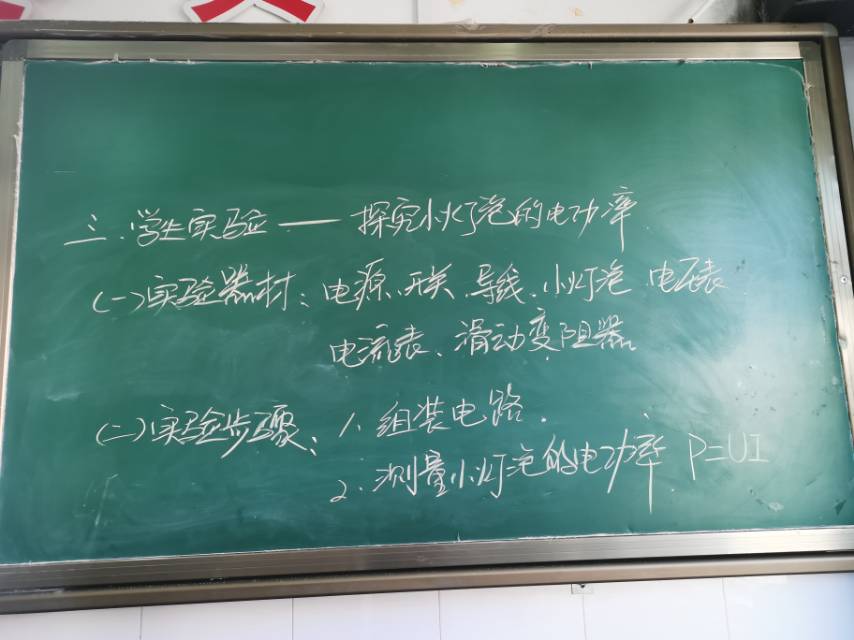 三.学生实验——探究小灯泡的电功率
(一)实验器材:电源、开关、导线、小灯泡 电压表
电流表、滑动变阻器。
(二)实验步骤:1.组装电路.
2.测量小灯泡的电功率 P=UI